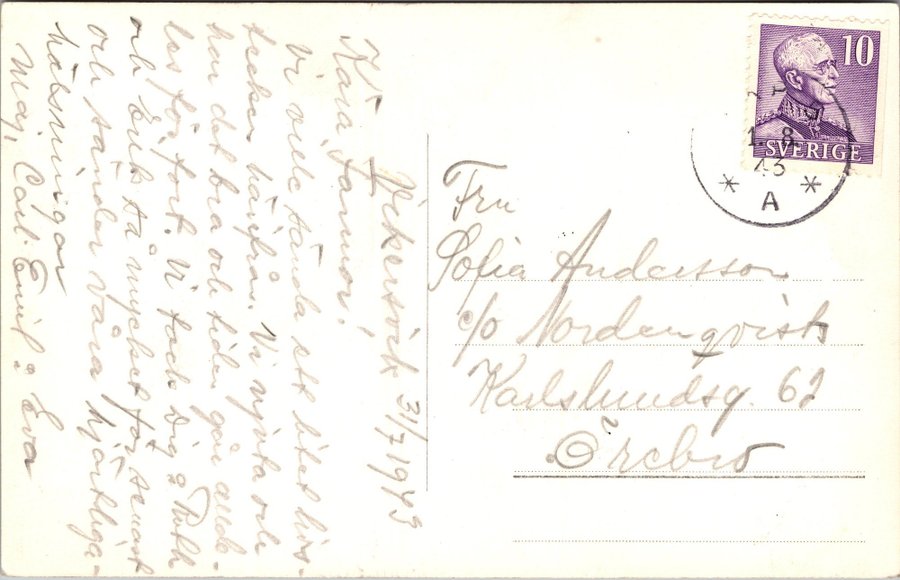 Vikersvik 31/7 1943
Kära Farmor!
Vi vill sända ett litet livs-
tecken härifrån. Vi njuta och
har det bra och tiden går allde-
les för fort. Vi tack Dig o. Ruth
och Erik så mycket för senast
och sänder Våra hjärtliga
hälsningar
Maj, Carl-Emil o. Eva
10
SVERIGE
1. 8.
43
* A *
Fru
Sofia Andersson
c/o Nordenqvist
Karlslundsg. 62
Örebro